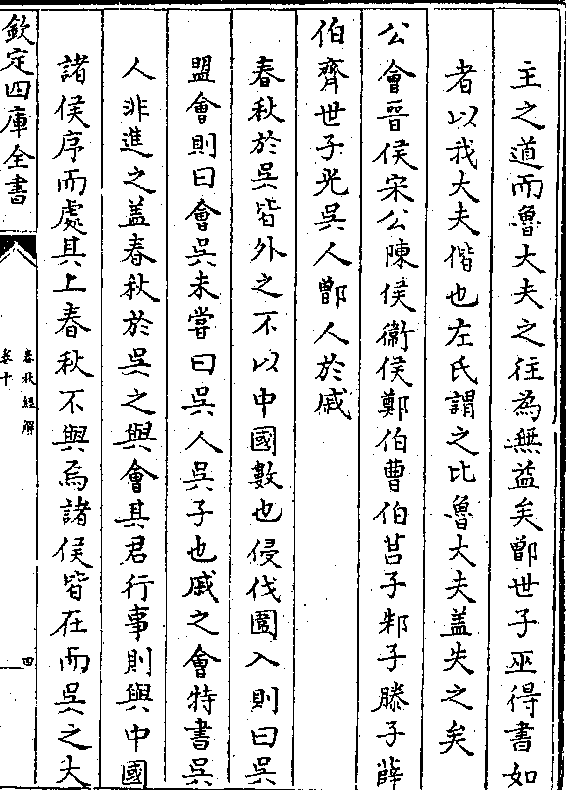 主之道而魯大夫之往為無益矣鄫世子巫得書如
者以我大夫偕也左氏謂之比魯大夫蓋失之矣
公會晉侯宋公陳侯衞侯鄭伯曹伯莒子邾子滕子薛
伯齊世子光吳人鄫人於戚
春秋於吳皆外之不以中國數也侵伐圍入則曰吳
盟會則曰會吳未嘗曰吳人吳子也戚之會特書吳
人非進之蓋春秋於吳之與會其君行事則與中國
諸侯序而處其上春秋不與焉諸侯皆在而吳之大
欽定四庫全書
春秋經解
卷十
四